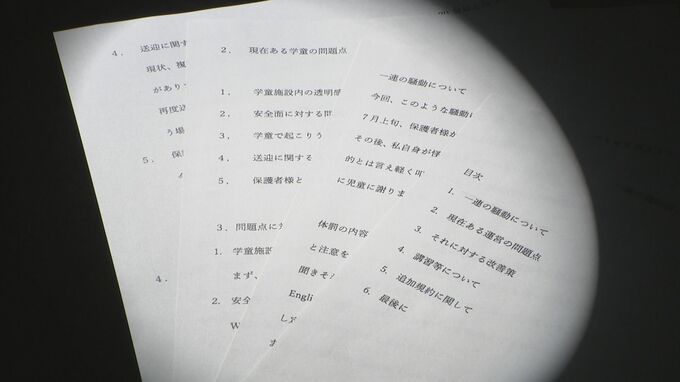 4. 送迎に関す
現状、複
があり
再度
う場
5. 保
4.
2. 現在ある学童の問題点
1. 学童施設内の透明
2. 安全面に対する問
3. 学童で起こりう
4. 送迎に関する
5. 保護者様と
3. 問題点に
1. 学童施設
まず、
2. 安全
W
一連の騒動について
今回、このような騒動
7月上旬、保護者様か
その後、私自身が
的とは言え軽く叩
に児童に謝りま
体罰の内容
と注意を
聞きそ
Engli
し
ま
目次
1. 一連の騒動について
2. 現在ある運営の問題点
3. それに対する改善策
4. 講習等について
5. 追加規約に関して
6. 最後に